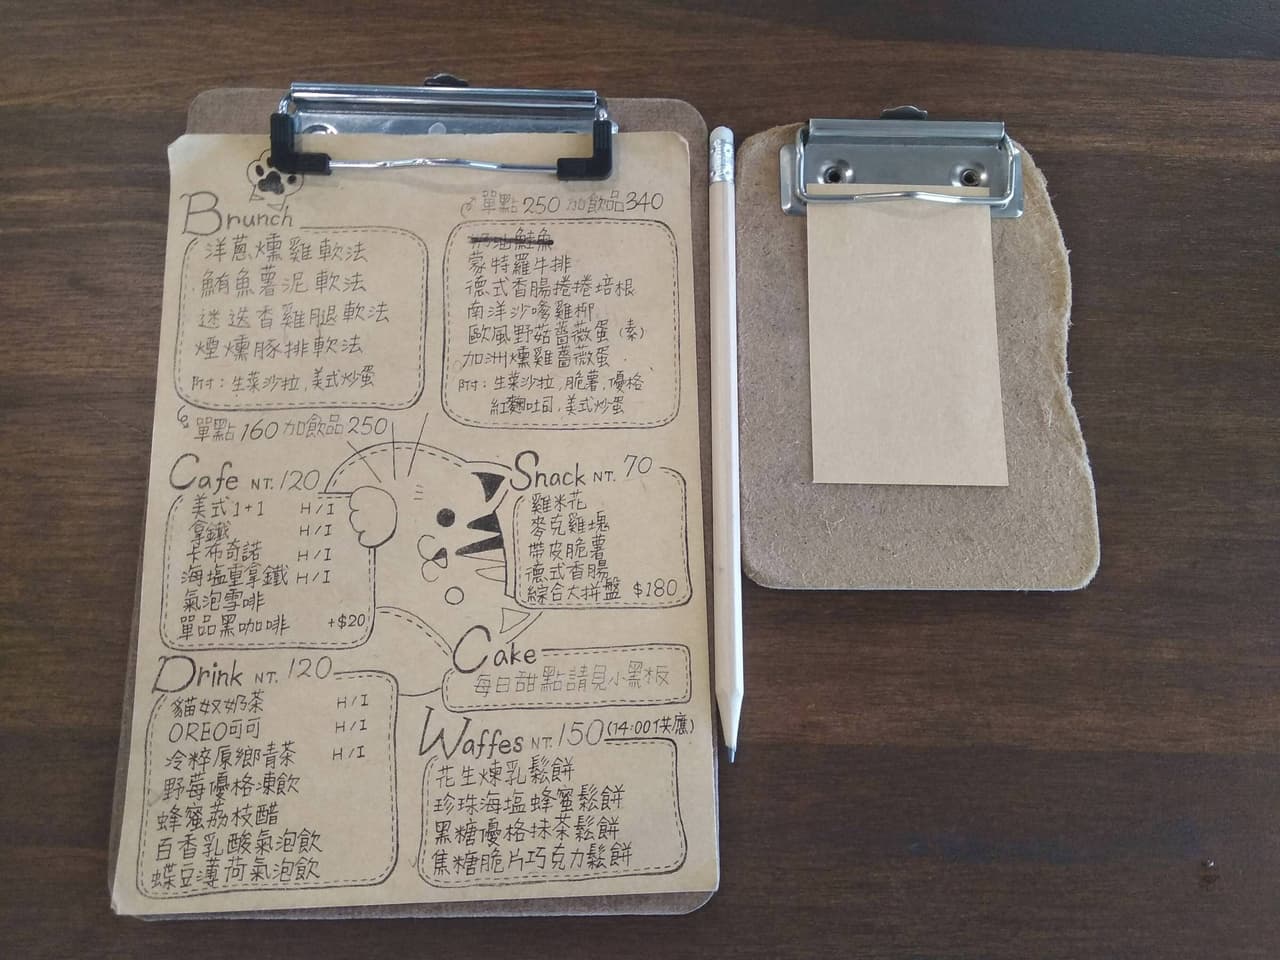 Brunch
洋蔥燻雞軟法
鮪魚薯泥軟法
迷迭香雞腿軟法
煙燻豚排軟法
附：生菜沙拉，美式炒蛋
單點160 加飲品250
單點250 加飲品340
奶油鮭魚
蒙特羅牛排
德式香腸捲捲培根
南洋沙嗲雞柳
歐風野菇薔薇蛋（素）
加洲燻雞薔薇蛋
附：生菜沙拉，脆薯，優格
紅麴吐司，美式炒蛋
Cafe NT. 120
美式1+1 H/I
拿鐵 H/I
卡布奇諾 H/I
海塩重拿鐵 H/I
氣泡雪啡
單品黑咖啡 +$20
Snack NT. 70
雞米花
麥克雞塊
帶皮脆薯
德式香腸
綜合大拼盤 $180
Cake
每日甜點請見小黑板
Drink NT. 120
貓奴奶茶 H/I
OREO可可 H/I
冷粹原鄉青茶 H/I
野莓優格凍飲
蜂蜜荔枝醋
百香乳酸氣泡飲
蝶豆薄荷氣泡飲
Waffes NT. 150 (14:00供應)
花生煉乳鬆餅
珍珠海塩蜂蜜鬆餅
黑糖優格抹茶鬆餅
焦糖脆片巧克力鬆餅